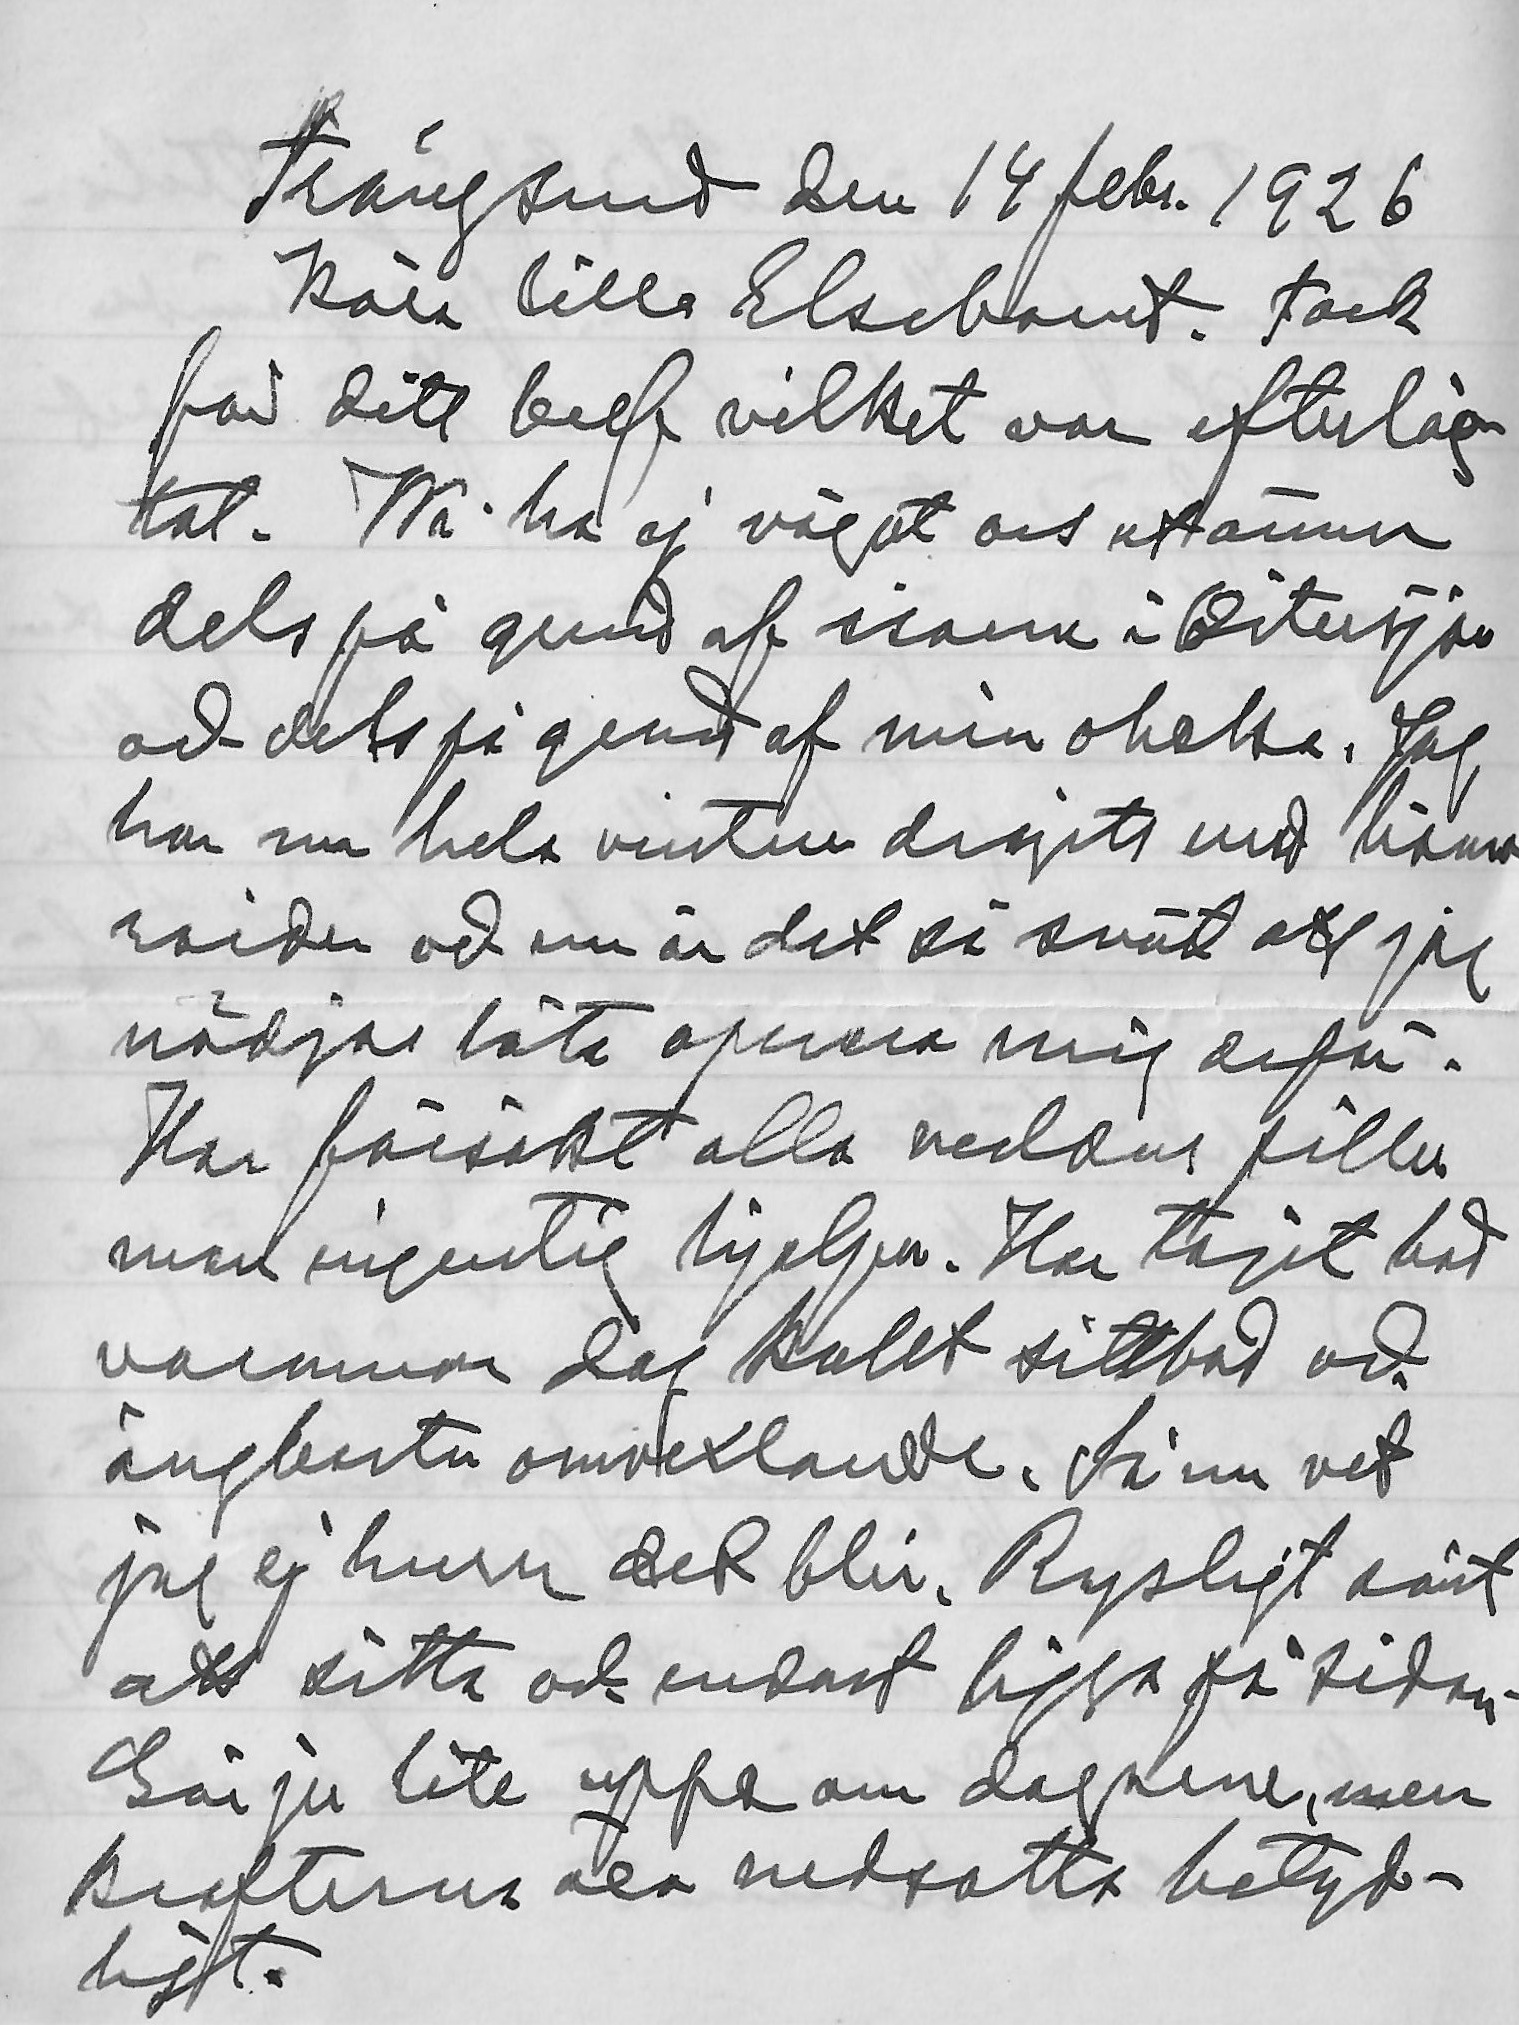 Trångsund den 14 febr. 1926
Kära lilla Elsebarnet. Tack
för ditt bref vilket var efterläng
tat. Wi ha ej vågat oss ut ännu
dels på grund af isarna i Östersjön
och dels på grund af min ohelsa. Jag
har nu hela vintern dragits med hämor
roider och nu är det så svårt att jag
nödgas låta operera mig derför.
Har försökt alla verldens piller
men ingenting hjelper. Har tagit bad
varannan dag kallt sittbad och
ångbastu omvexlande. Så nu vet
jag ej huru det blir. Rysligt svårt
att sitta och endast ligga på sidan.
Går ju lite uppe om dagarne, men
krafterna äro nedsatta betyd-
ligt.